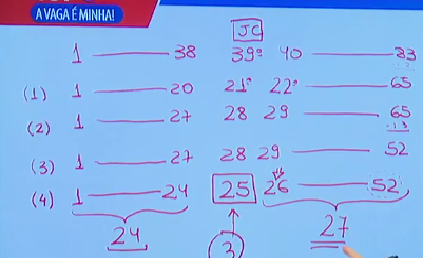 A VAGA É MINHA!
JC
1 38 39º 40 83
(1) 1 20 21º 22º 65
(2) 1 27 28 29 65
13
(3) 1 27 28 29 52
(4) 1 24 25 26 52
24 3 27